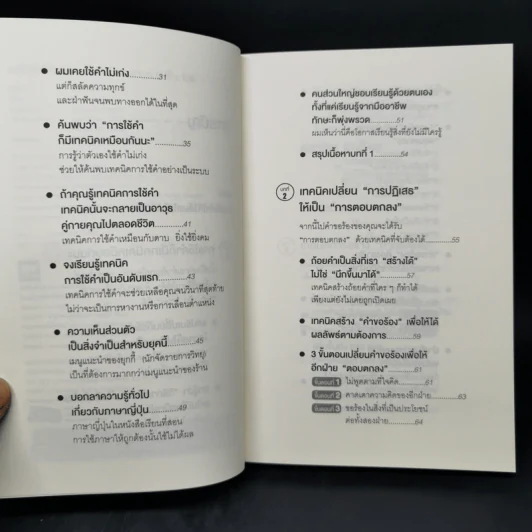 ● ผมเคยใช้คำไม่เก่ง............31
แต่ก็สลัดความทุกข์
และฝ่าฟันจนพบทางออกได้ในที่สุด
● ค้นพบว่า "การใช้คำ
ก็มีเทคนิคเหมือนกันนะ"..........35
การรู้ว่าตัวเองใช้คำไม่เก่ง
ช่วยให้ค้นพบเทคนิคการใช้คำอย่างเป็นระบบ
● ถ้าคุณรู้เทคนิคการใช้คำ
เทคนิคนั้นจะกลายเป็นอาวุธ
คู่กายคุณไปตลอดชีวิต..........41
เทคนิคการใช้คำเหมือนกับดาบ ยิ่งใช้ยิ่งคม
● จงเรียนรู้เทคนิค
การใช้คำเป็นอันดับแรก..........43
เทคนิคการใช้คำจะช่วยเหลือคุณจนวินาทีสุดท้าย
ไม่ว่าจะเป็นการหางานหรือการเลื่อนตำแหน่ง
● ความเห็นส่วนตัว
เป็นสิ่งจำเป็นสำหรับยุคนี้..........45
เมนูแนะนำของยุกกี้ (นักจัดรายการวิทยุ)
เป็นที่ต้องการมากกว่าเมนูแนะนำของร้าน
● บอกลาความรู้ทั่วไป
เกี่ยวกับภาษาญี่ปุ่น..........49
ภาษาญี่ปุ่นในหนังสือเรียนที่สอน
การใช้ภาษาให้ถูกต้องนั้นใช้ไม่ได้ผล
● คนส่วนใหญ่ชอบเรียนรู้ด้วยตนเอง
ทั้งที่แค่เรียนรู้จากมืออาชีพ
ทักษะก็พุ่งพรวด..........51
ผมเห็นว่านี่คือโอกาสเรียนรู้สิ่งที่ยังไม่มีใครรู้
● สรุปเนื้อหาบทที่ 1..........54
บทที่ 2 เทคนิคเปลี่ยน "การปฏิเสธ"
ให้เป็น "การตอบตกลง"
จากนี้ไปคำขอร้องของคุณจะได้รับ
"การตอบตกลง" ด้วยเทคนิคที่จับต้องได้..........55
● ถ้อยคำเป็นสิ่งที่เรา "สร้างได้"
ไม่ใช่ "นึกขึ้นมาได้"..........57
เทคนิคสร้างถ้อยคำที่ใคร ๆ ก็ทำได้
เพียงแต่ยังไม่เคยถูกเปิดเผย
● เทคนิคสร้าง "คำขอร้อง" เพื่อให้ได้
ผลลัพธ์ตามต้องการ..........59
● 3 ขั้นตอนเปลี่ยนคำขอร้องเพื่อให้
อีกฝ่าย "ตอบตกลง"..........61
ขั้นตอนที่ 1 ไม่พูดตามที่ใจคิด..........61
ขั้นตอนที่ 2 คาดเดาความคิดของอีกฝ่าย..........63
ขั้นตอนที่ 3 ขอร้องในสิ่งที่เป็นประโยชน์
ต่อทั้งสองฝ่าย..........64